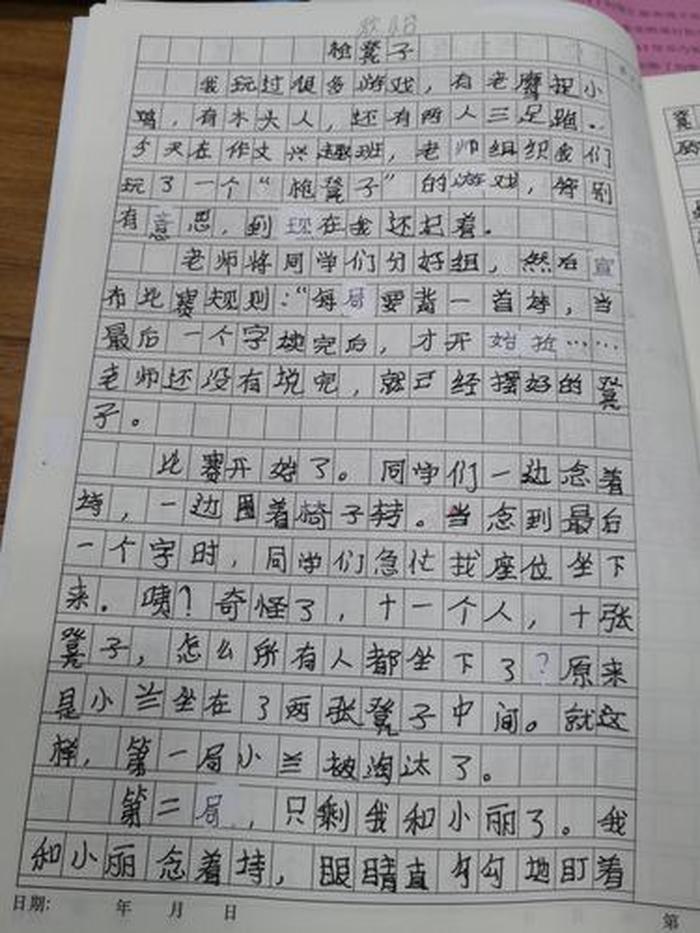 抢凳子
我玩过很多游戏，有老鹰捉小
鸡，有木头人，还有两人三足跑。
今天在作文兴趣班，老师组织我们
玩了一个“抢凳子”的游戏，特别
有意思，到现在我还记着。
老师将同学们分好组，然后宣
布比赛规则：“每局要背一首诗，当
最后一个字读完后，才开始抢……
老师还没有说完，就已经摆好的凳
子。
比赛开始了。同学们一边念着
诗，一边围着椅子转。当念到最后
一个字时，同学们急忙找座位坐下
来。咦？奇怪了，十一个人，十张
凳子，怎么所有人都坐下了？原来
是小兰坐在了两张凳子中间。就这
样，第一局小兰被淘汰了。
第二局，只剩我和小丽了。我
和小丽念着诗，眼睛直勾勾地盯着
日期： 年 月 日
第